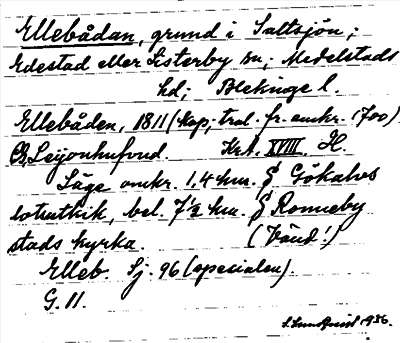 Ellebådan, grund i Saltsjön;
Edestad eller Listerby sn; Medelstads
hd; Blekinge l.
Ellebåden, 1811 (kop; trol. fr. omkr. 1700).
Ch. Leijonhufvud. Krt. XVIII. H
Läge omkr. 1,4 km. § Gökalvs
lotsutkik, bel. 7½ km. § Ronneby
stads kyrka. (Vänd!)
Elleb. Sj. 96 (specialen).
G. 11.
S. Lundqvist 1936.